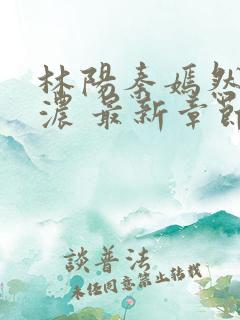 林陽秦嫣然
濃 最新章節
談普法
未經同意禁止轉載